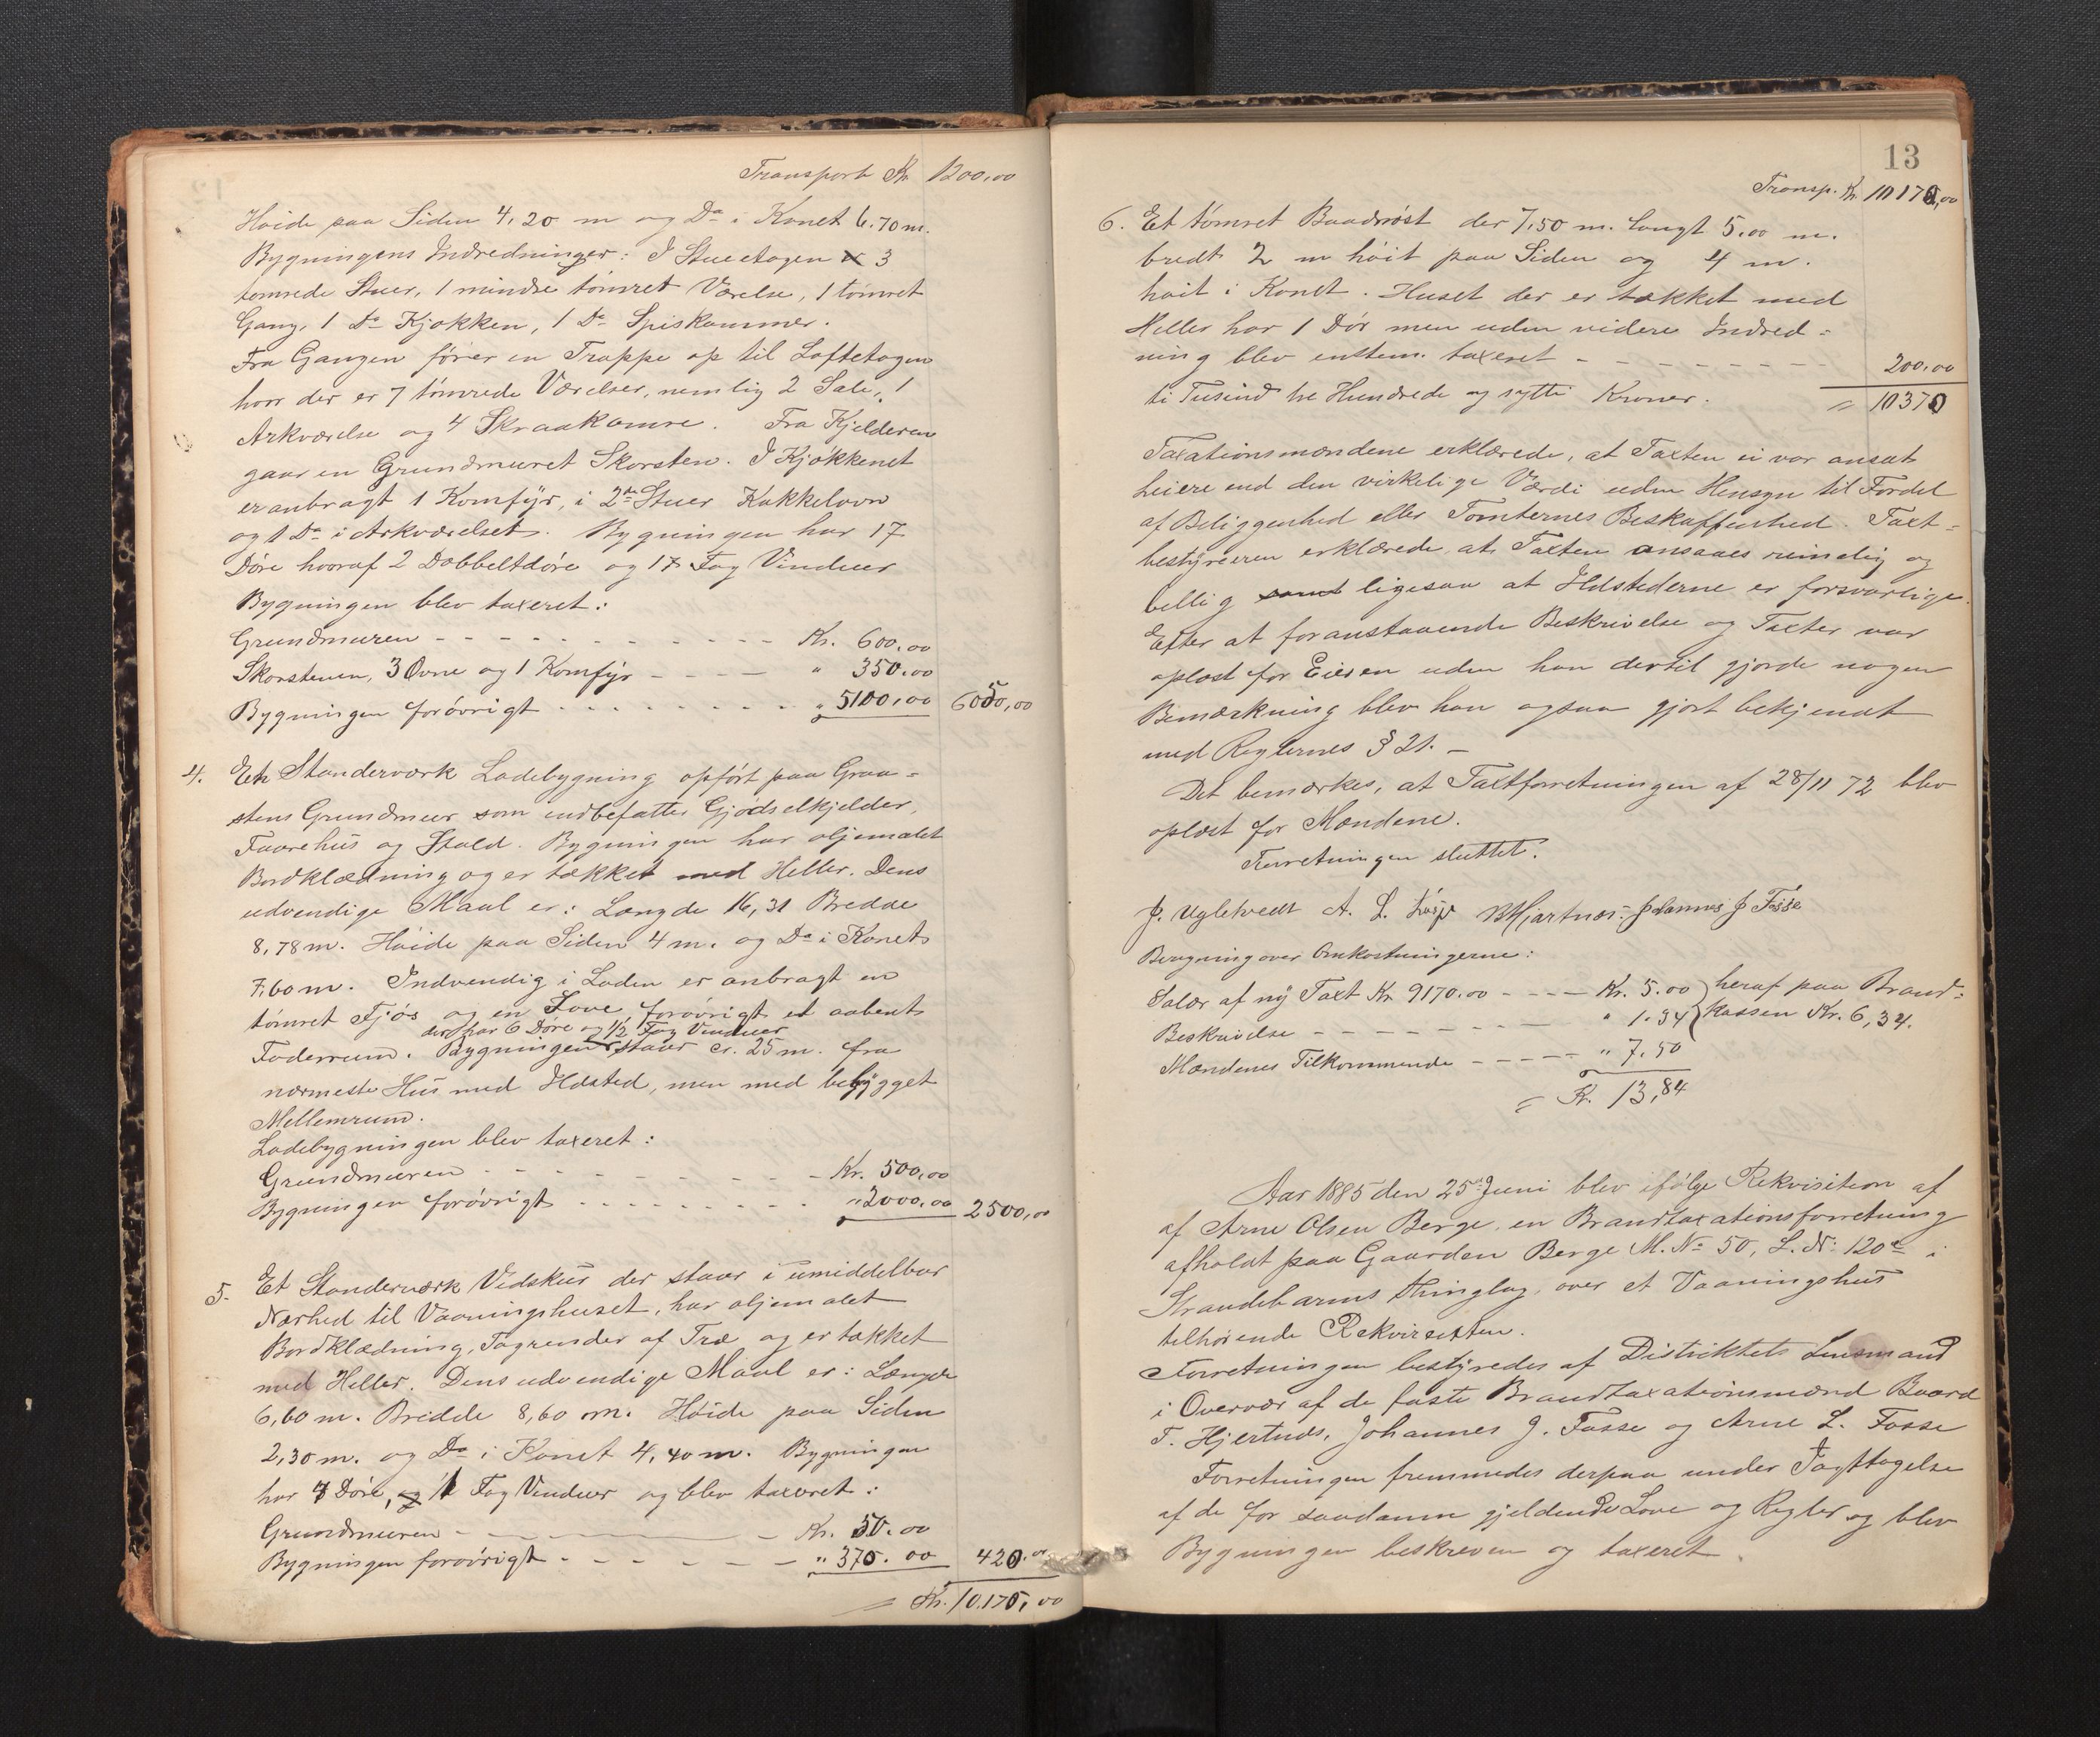 Transport Kr. 1200,00
Høide paa Siden 4,20 m og Do i Rønet 6.70 m.
Bygningens Indredninger: I Stueetagen 3
tømrede Stuer, 1 mindre tømret Værelse, 1 tømret
Gang, 1 Do Kjøkken, 1 Do Spiskammer.
Fra Gangen fører en Trappe op til Loftetagen
hvor der er 7 tømrede Værelser, nemlig 2 Sale, 1
Arkværelse og 4 Skraakamre. Fra Kjelderen
gaar en Grundmuret Skorsten. I Kjøkkenet
er anbragt 1 Komfyr, i 2de Stuer Kakkelovn
og 1 Do i Arkværelset. Bygningen har 17
Døre hvoraf 2 Dobbeltdøre og 17 Fag Vinduer
Bygningen blev taxeret:
Grundmuren - - - - Kr. 600,00
Skorstenen, 3 Ovne og 1 Komfyr - - - " 350.00
Bygningen forøvrigt - - - - " 5100,00 6050,00
4. Et Standerværk Ladebygning opført paa Graa-
stens Grundmur som indbefatter Gjødselkjelder,
Faarehus og Stald. Bygningen har oljemalet
Bordklædning og er tækket med Heller. Dens
udvendige Maal er: Længde 16,31 Bredde
8,78 m. Høide paa Siden 4 m. og Do i Rønet
7,60 m. Indvendig i Laden er anbragt en
tømret Fjøs og en Love, forøvrigt et aabent
der har 6 Døre og 1½ Fag Vinduer
Foderrum. Bygningen staar cr. 25 m. fra
nærmeste Hus med Ildsted, men med bebygget
Mellemrum.
Ladebygningen blev taxeret:
Grundmuren - - - - Kr. 500,00
Bygningen forøvrigt - - - - " 2000,00 2500,00
5. Et Standerværk Vedskur der staar i umiddelbar
Nærhed til Vaaningshuset, har oljemalet
Bordklædning, Tagrender af Træ og er tækket
med Heller. Dens udvendige Maal er: Længde
6,60 m. Bredde 8,60 m. Høide paa Siden
2,30 m. og Do i Rønet 4,40 m. Bygningen
har 7 Døre, og 1 Fag Vinduer og blev taxeret:
Grundmuren - - - - Kr. 50.00
Bygningen forøvrigt - - - - " 370.00 420.00
= Kr. 10.170,00
13
Transp. Kr. 10170,00
6. Et tømret Baadnøst der 7,50 m. langt 5.00 m.
bredt 2 m høit paa Siden og 4 m.
høit i Rønet. Huset der er tækket med
Heller har 1 Dør men uden videre Indred-
ning blev enstem. taxeret - - - - 200,00
ti Tusind tre Hundrede og sytti Kroner. = 10370
Taxationsmændene erklærede, at Taxten ei var ansat
høiere end den virkelige Værdi uden Hensyn til Fordel
af Beliggenhed eller Tomternes Beskaffenhed. Taxt-
bestyreren erklærede, at Taxten ansaaes rimelig og
billig samt ligesaa at Ildstederne er forsvarlige.
Efter at foranstaaende Beskrivelse og Taxter var
oplæst for Eieren uden han dertil gjorde nogen
Bemærkning blev han ogsaa gjort bekjendt
med Reglernes § 21. -
Det bemærkes, at Taxtforretningen af 28/11 72 blev
oplæst for Mændene.
Forretningen sluttet.
J. Ugletvedt A. L. BHjartnæs. Johannes J Fosse
Beregning over Omkostningerne:
Salær af ny Taxt Kr 9170.00 - - - Kr. 5.00 } heraf paa Brand-
Beskrivelse - - - - " 1.34 } kassen Kr. 6,34.
Mændenes Tilkommende - - - - " 7.50
= Kr. 13,84
Aar 1885 den 25de Juni blev ifølge Rekvisition af
af Arne Olsen Berge, en Brandtaxationsforretning
afholdt paa Gaarden Berge M. No 50, L. No 120a i
Strandebarms Thinglag, over et Vaaningshus
tilhørende Rekvirenten.
Forretningen bestyredes af Distriktets Lensmand
i Overvær af de faste Brandtaxationsmænd Baard
T. Hjertnæs, Johannes J. Fosse og Arne L. Fosse
Forretningen fremmedes derpaa under Iagttagelse
af de for saadanne gjeldende Love og Regler og blev
Bygningen beskreven og taxeret.